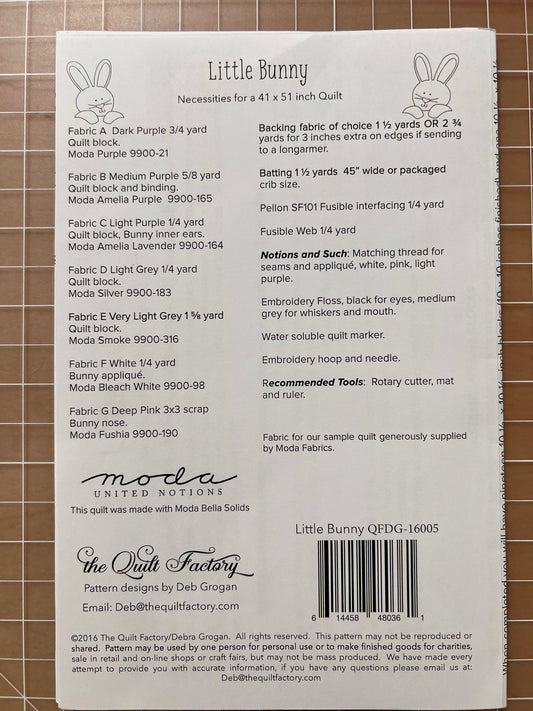 Little Bunny
Necessities for a 41 x 51 inch Quilt
Fabric A Dark Purple 3/4 yard
Quilt block.
Moda Purple 9900-21
Fabric B Medium Purple 5/8 yard
Quilt block and binding.
Moda Amelia Purple 9900-165
Fabric C Light Purple 1/4 yard
Quilt block, Bunny inner ears.
Moda Amelia Lavender 9900-164
Fabric D Light Grey 1/4 yard
Quilt block.
Moda Silver 9900-183
Fabric E Very Light Grey 1 ⅝ yard
Quilt block.
Moda Smoke 9900-316
Fabric F White 1/4 yard
Bunny appliqué.
Moda Bleach White 9900-98
Fabric G Deep Pink 3x3 scrap
Bunny nose.
Moda Fushia 9900-190
Backing fabric of choice 1 ½ yards OR 2 ¾
yards for 3 inches extra on edges if sending
to a longarmer.
Batting 1 ½ yards 45" wide or packaged
crib size.
Pellon SF101 Fusible interfacing 1/4 yard
Fusible Web 1/4 yard
Notions and Such: Matching thread for
seams and appliqué, white, pink, light
purple.
Embroidery Floss, black for eyes, medium
grey for whiskers and mouth.
Water soluble quilt marker.
Embroidery hoop and needle.
Recommended Tools: Rotary cutter, mat
and ruler.
Fabric for our sample quilt generously supplied
by Moda Fabrics.
moda
UNITED NOTIONS
This quilt was made with Moda Bella Solids
the Quilt Factory
Pattern designs by Deb Grogan
Email: Deb@thequiltfactory.com
Little Bunny QFDG-16005
6 14458 48036 1
©2016 The Quilt Factory/Debra Grogan. All rights reserved. This pattern may not be reproduced or
shared. Pattern may be used by one person for personal use or to make finished goods for charities,
sale in retail and on-line shops or craft fairs, but may not be mass produced. We have made every
attempt to provide you with accurate information, if you have any questions please email us at:
Deb@thequiltfactory.com
When completed you will have nineteen 10 ½ x 10 ½ inch blocks (10 x 10 inches finished) and one 10 ½ x 10 ½